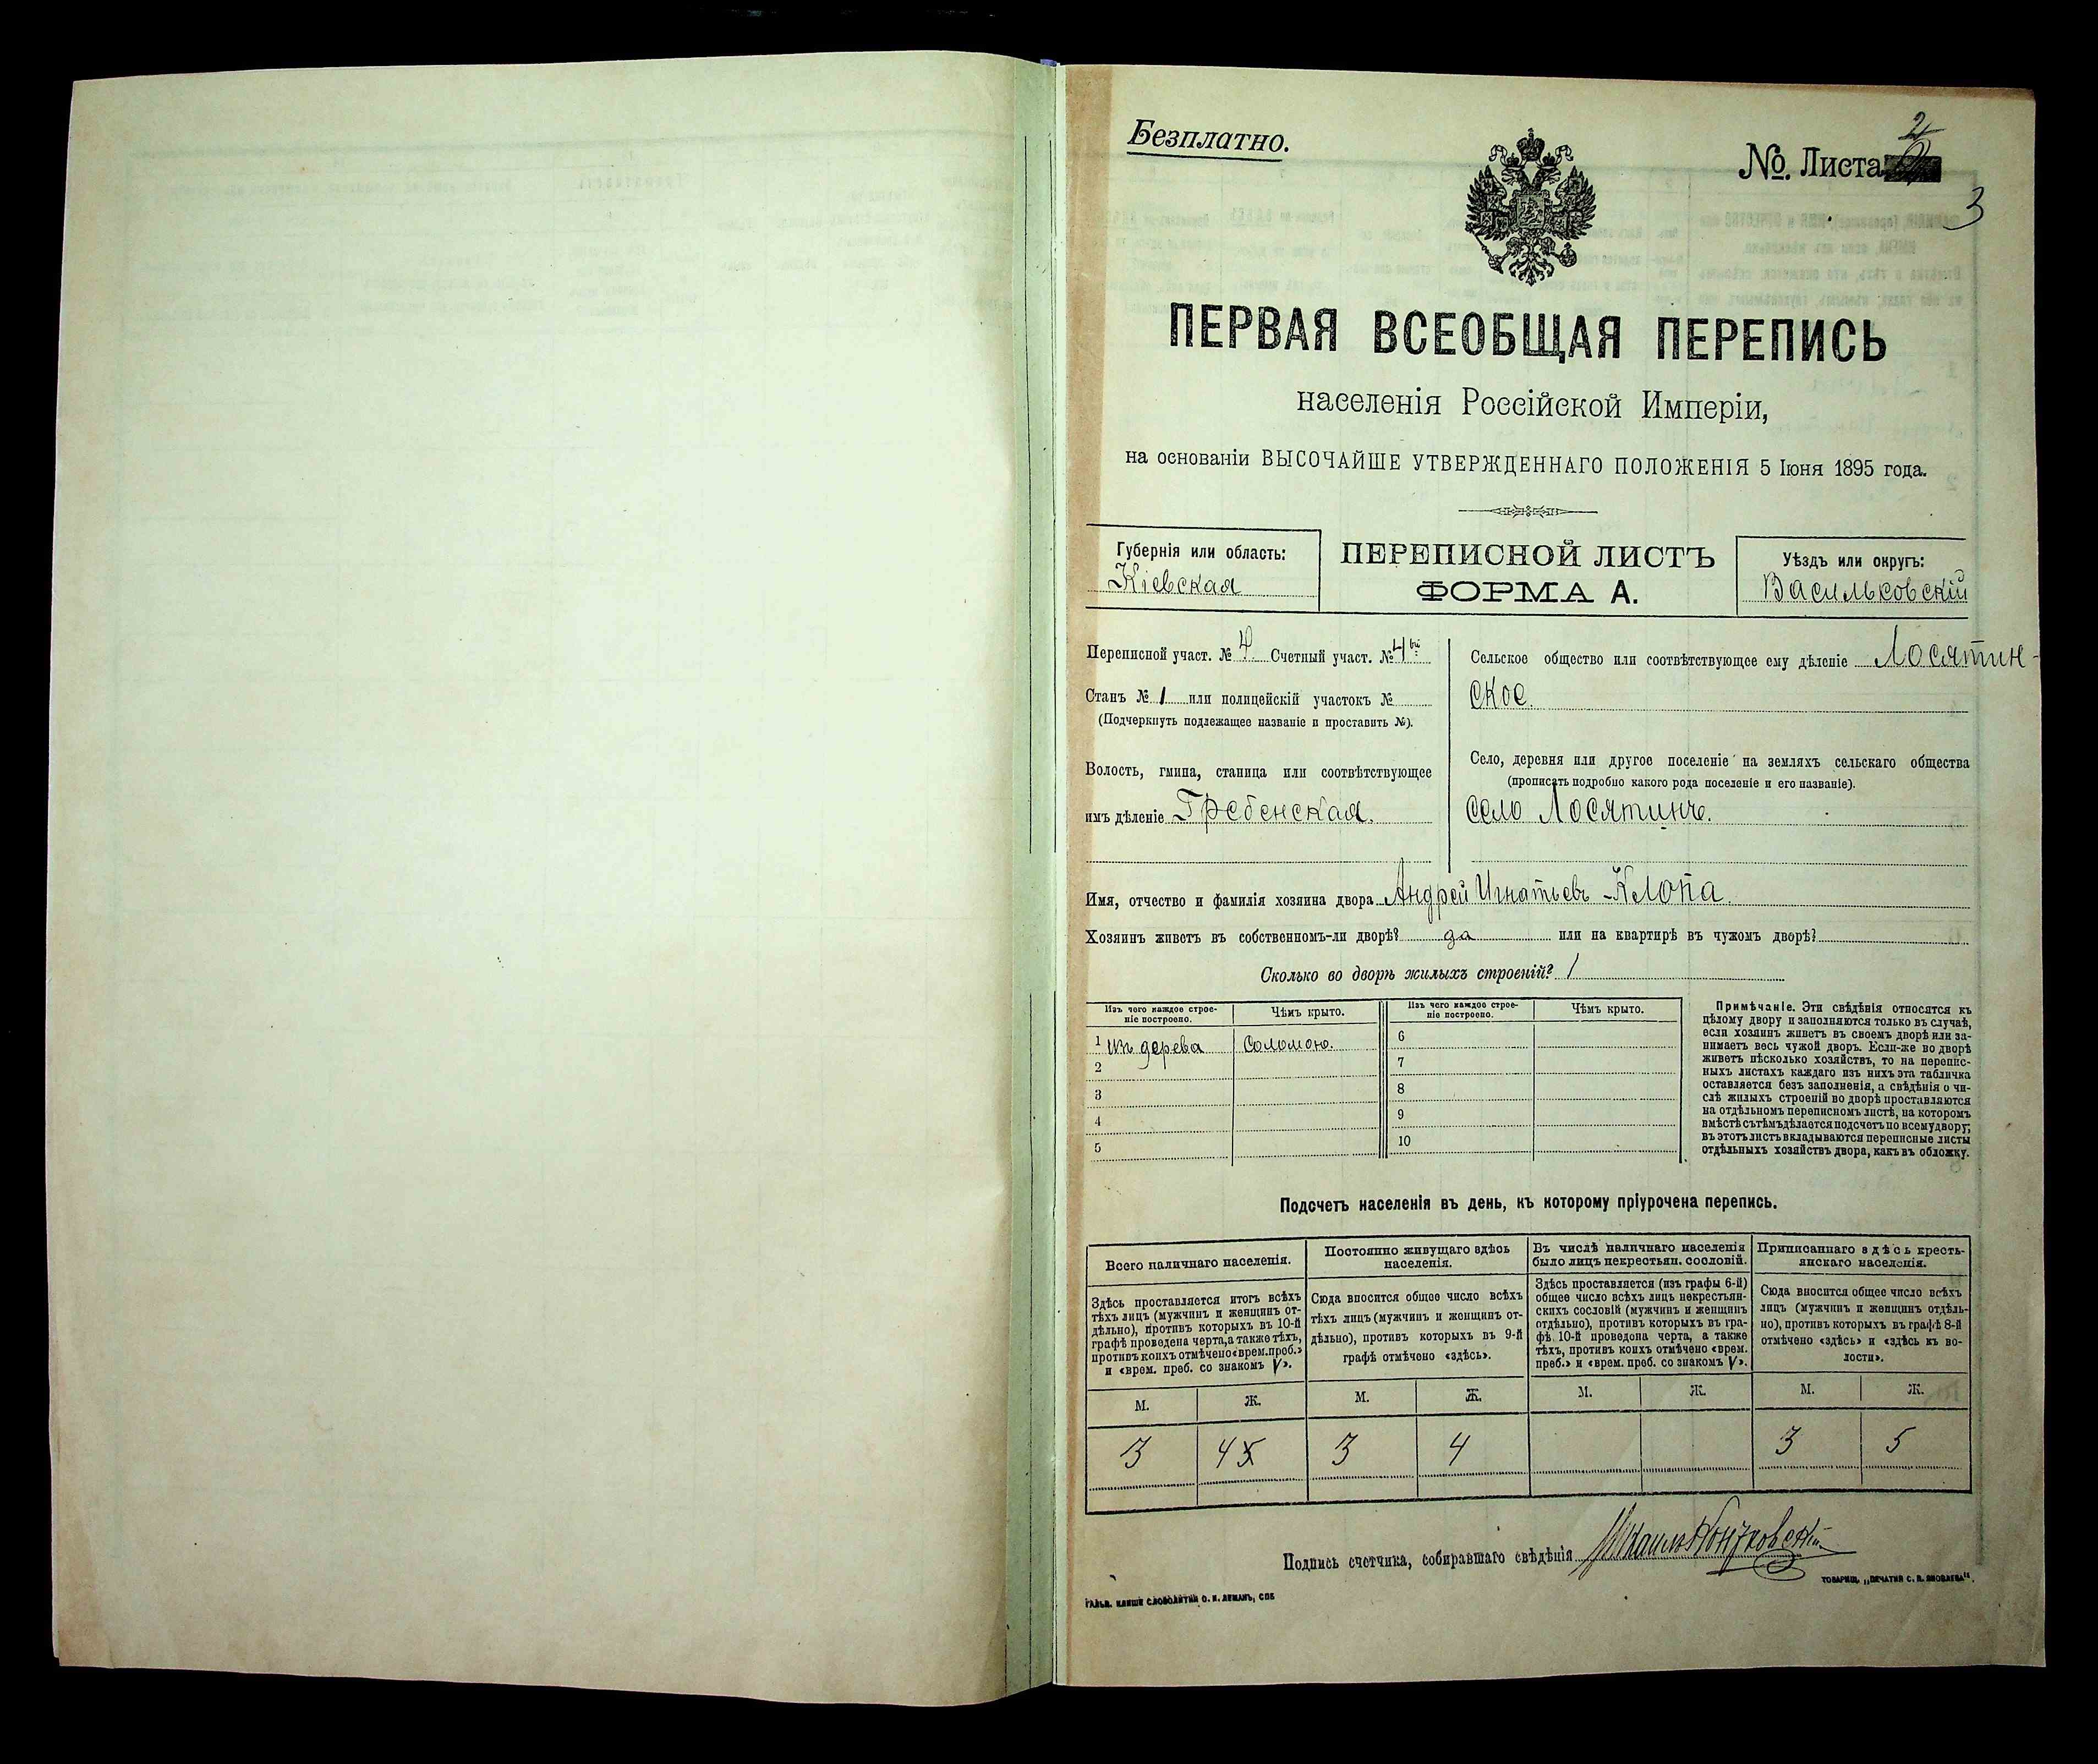 Безплатно.
№. Листа 2
3
ПЕРВАЯ ВСЕОБЩАЯ ПЕРЕПИСЬ
населенія Россійской Имперіи,
на основаніи ВЫСОЧАЙШЕ УТВЕРЖДЕННАГО ПОЛОЖЕНІЯ 5 Іюня 1895 года.
Губернія или область:
Кіевская
ПЕРЕПИСНОЙ ЛИСТЪ
ФОРМА А.
Уѣздъ или округъ:
Васильковскій
Переписной участ. № 4 Счетный участ. № 4ый
Станъ № 1 или полицейскій участокъ №
(Подчеркнуть подлежащее названіе и проставить №).
Волость, гмина, станица или соотвѣтствующее
имъ дѣленіе Гребенская.
Сельское общество или соотвѣтствующее ему дѣленіе Лосятин-
ское.
Село, деревня или другое поселеніе на земляхъ сельскаго общества
(прописать подробно какого рода поселеніе и его названіе).
село Лосятинъ.
Имя, отчество и фамилія хозяина двора Андрей Игнатьевъ Клопа.
Хозяинъ живетъ въ собственномъ-ли дворѣ? да или на квартирѣ въ чужомъ дворѣ?
Сколько во дворѣ жилыхъ строеній? 1
Изъ чего каждое строе-
ніе построено.
Чѣмъ крыто.
Изъ чего каждое строе-
ніе построено.
Чѣмъ крыто.
1 изъ дерева Соломою. 6
2 7
3 8
4 9
5 10
Примѣчаніе. Эти свѣдѣнія относятся къ
цѣлому двору и заполняются только въ случаѣ,
если хозяинъ живетъ въ своемъ дворѣ или за-
нимаетъ весь чужой дворъ. Если-же во дворѣ
живетъ нѣсколько хозяйствъ, то на перепис-
ныхъ листахъ каждаго изъ нихъ эта табличка
оставляется безъ заполненія, а свѣдѣнія о чи-
слѣ жилыхъ строеній во дворѣ проставляются
на отдѣльномъ переписномъ листѣ, на которомъ
вмѣстѣ съ тѣмъ дѣлается подсчетъ по всему двору;
въ этотъ листъ вкладываются переписные листы
отдѣльныхъ хозяйствъ двора, какъ въ обложку.
Подсчетъ населенія въ день, къ которому пріурочена перепись.
Всего наличнаго населенія.
Здѣсь проставляется итогъ всѣхъ
тѣхъ лицъ (мужчинъ и женщинъ от-
дѣльно), противъ которыхъ въ 10-й
графѣ проведена черта, а также тѣхъ,
противъ коихъ отмѣчено «врем. преб.»
и «врем. преб. со знакомъ V».
Постоянно живущаго здѣсь
населенія.
Сюда вносится общее число всѣхъ
тѣхъ лицъ (мужчинъ и женщинъ от-
дѣльно), противъ которыхъ въ 9-й
графѣ отмѣчено «здѣсь».
Въ числѣ наличнаго населенія
было лицъ некрестьян. сословій.
Здѣсь проставляется (изъ графы 6-й)
общее число всѣхъ лицъ некрестьян-
скихъ сословій (мужчинъ и женщинъ
отдѣльно), противъ которыхъ въ гра-
фѣ 10-й проведена черта, а также
тѣхъ, противъ коихъ отмѣчено «врем.
преб.» и «врем. преб. со знакомъ V».
Приписаннаго здѣсь кресть-
янскаго населенія.
Сюда вносится общее число всѣхъ
лицъ (мужчинъ и женщинъ отдѣль-
но), противъ которыхъ въ графѣ 8-й
отмѣчено «здѣсь» и «здѣсь къ во-
лости».
М. Ж. М. Ж. М. Ж. М. Ж.
3 4 5 3 4 3 5
Подпись счетчика, собиравшаго свѣдѣнія Михаилъ
ГАЛЬВ. КЛИШЕ СЛОВОЛИТНИ О. И. ЛЕМАНЪ, СПБ
ТОВАРИЩ. „ПЕЧАТНЯ С. П. ЯКОВЛЕВА".